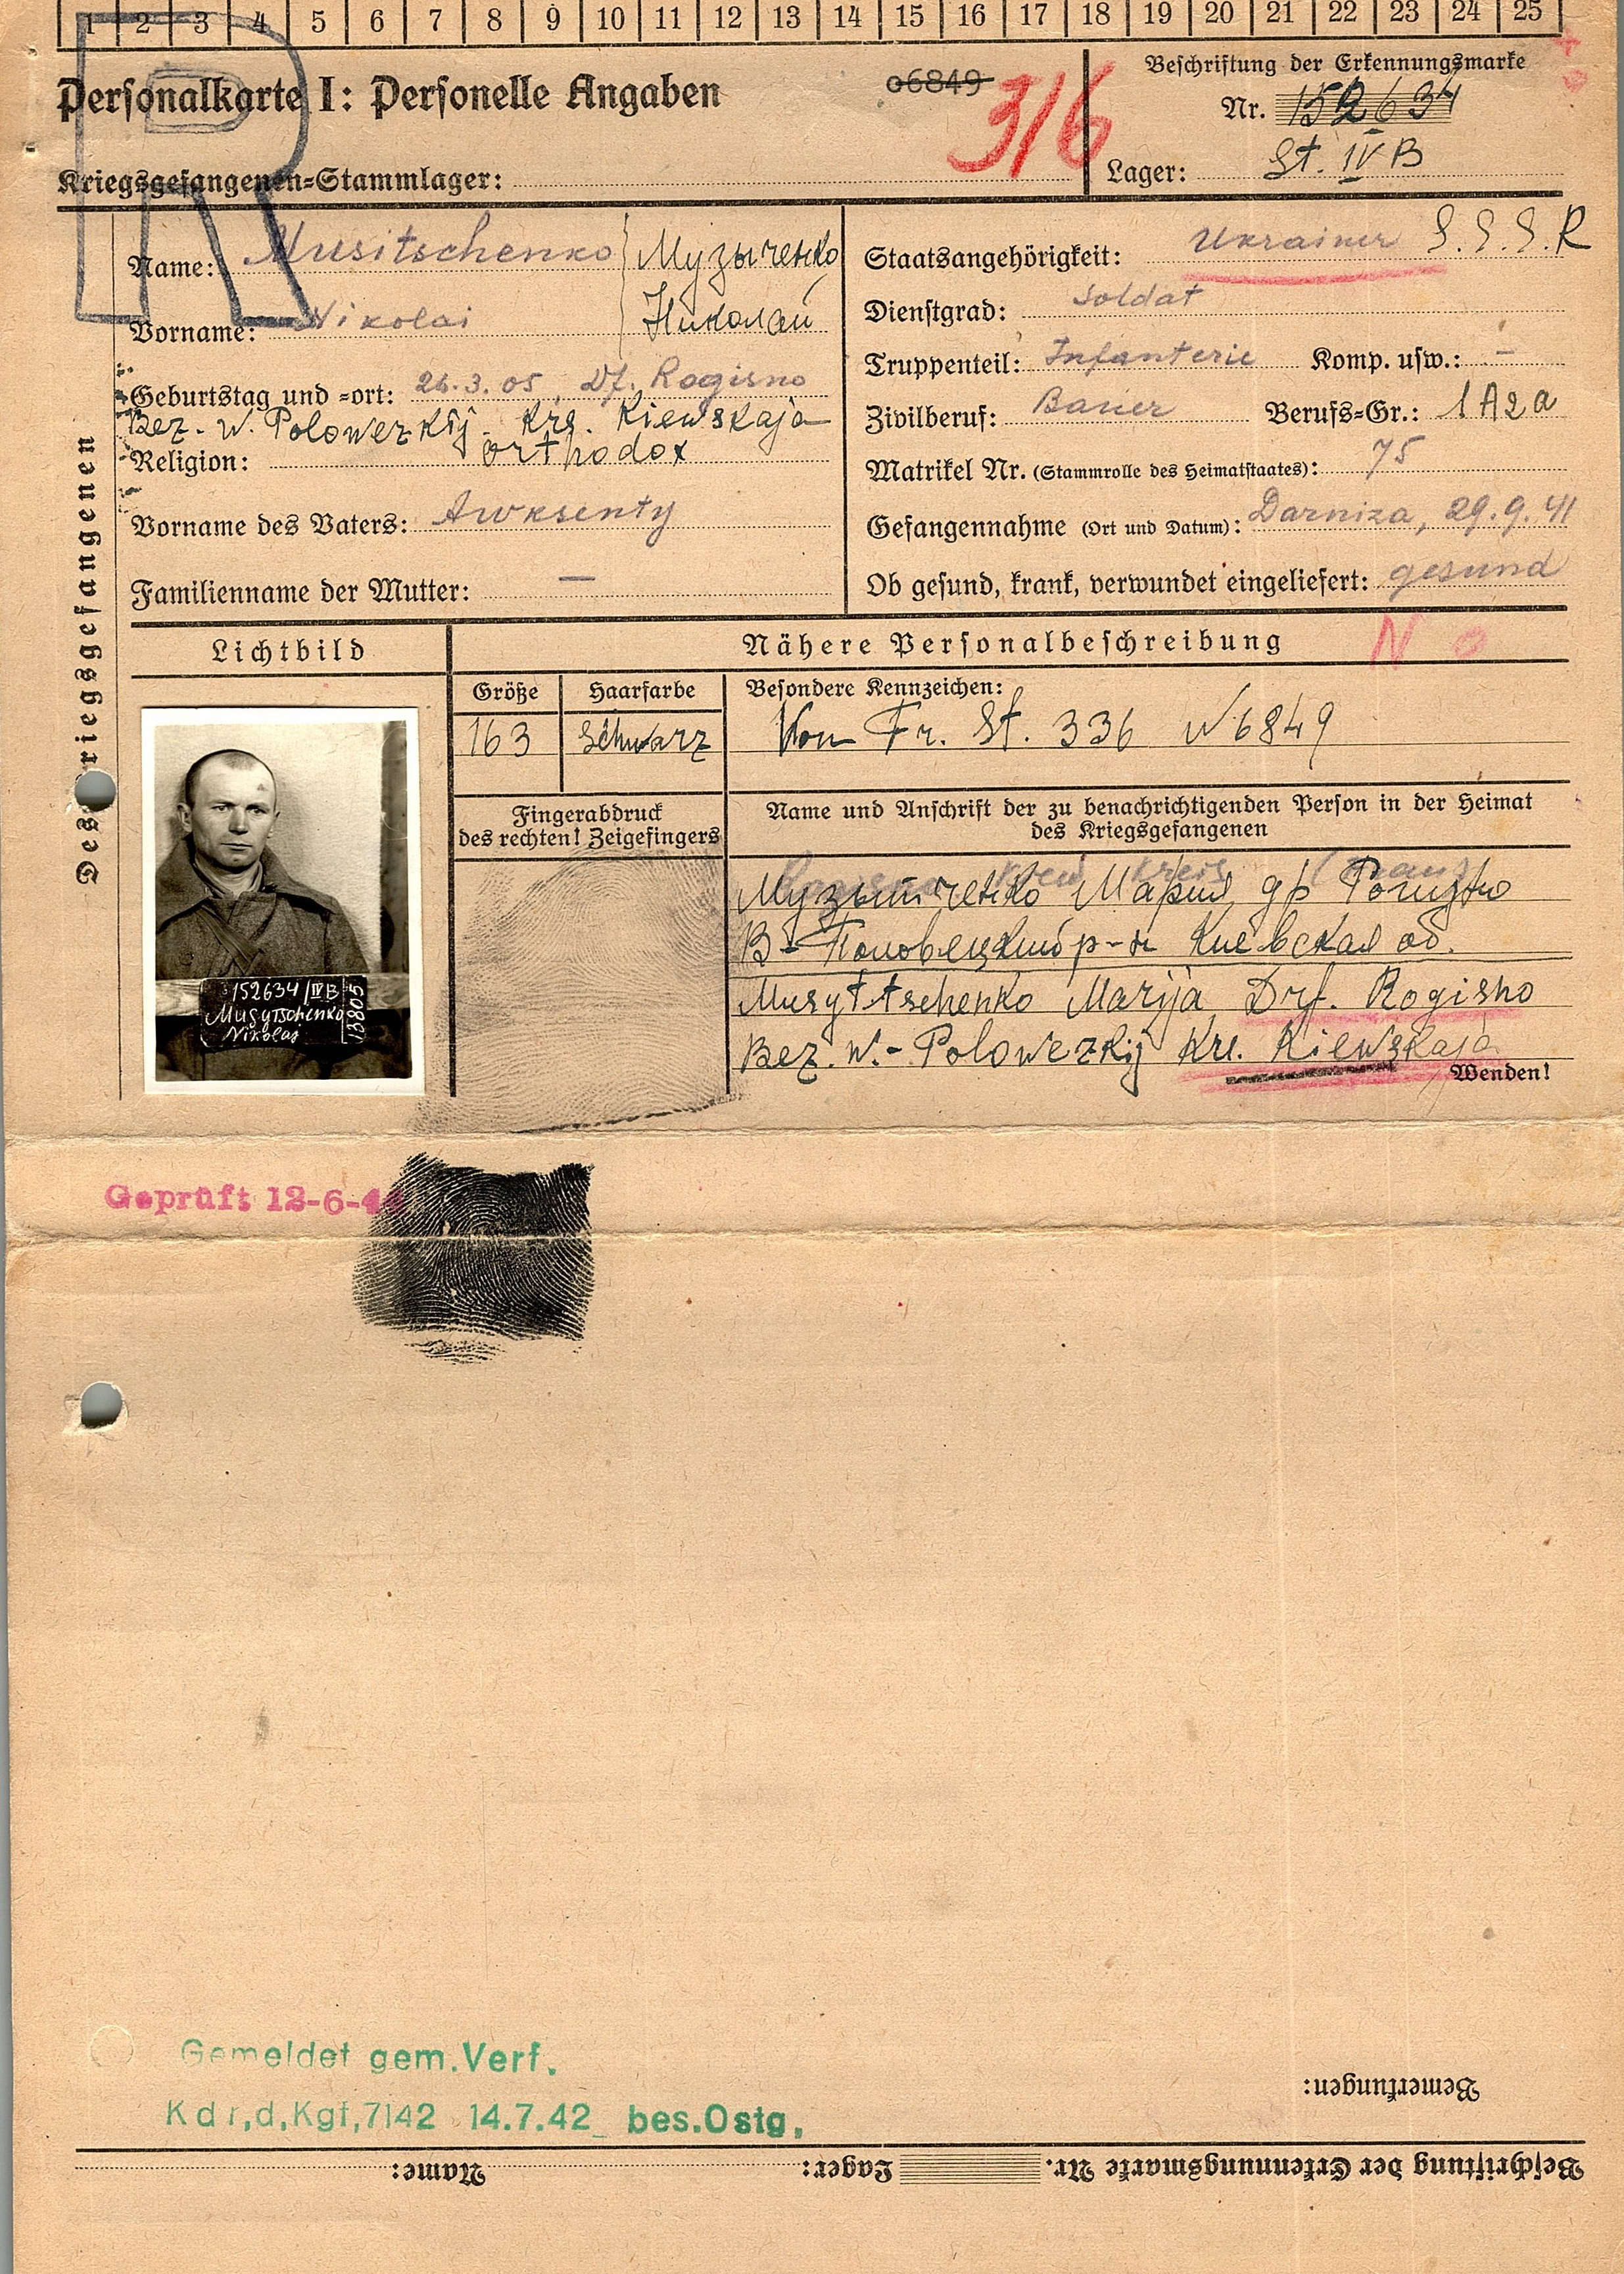 1 2 3 4 5 6 7 8 9 10 11 12 13 14 15 16 17 18 19 20 21 22 23 24 25
Personalkarte I: Personelle Angaben
06849
316
Beschriftung der Erkennungsmarke
Nr. 152634
Kriegsgefangenen-Stammlager:
Lager: St. IV B
R
Des Kriegsgefangenen
Name: Musitschenko Музыченко
Vorname: Nikolai Николай
Geburtstag und -ort: 26.3.05, Df. Rogisno
Bez. W. Polowezkij. Krs. Kiewskaja
Religion: orthodox
Vorname des Vaters: Awksenty
Familienname der Mutter: —
Staatsangehörigkeit: Ukrainer S.S.S.R
Dienstgrad: Soldat
Truppenteil: Infanterie Komp. usw.: -
Zivilberuf: Bauer Berufs-Gr.: 1A2a
Matrikel Nr. (Stammrolle des Heimatstaates): 75
Gefangennahme (Ort und Datum): Darniza, 29.9.41
Ob gesund, krank, verwundet eingeliefert: gesund
Lichtbild
Nähere Personalbeschreibung
N o
Größe Haarfarbe Besondere Kennzeichen:
163 Schwarz Von Fr. St. 336 N 6849
Fingerabdruck
des rechten! Zeigefingers
Name und Anschrift der zu benachrichtigenden Person in der Heimat
des Kriegsgefangenen
Музыченко Мария др Рогизно
В-Половецкий р-н Киевская об.
Musytschenko Marija Drf. Rogisno
Bez. W.- Polowezkij Krs. Kiewskaja
Wenden!
152634/IVB
Musytschenko
Nikolai
13805
Geprüft 12-6-44
Gemeldet gem. Verf.
Kdr,d,Kgf,7142 14.7.42 bes.Ostg,
Bemerkungen:
Beschriftung der Erkennungsmarke Nr. Lager: Name: